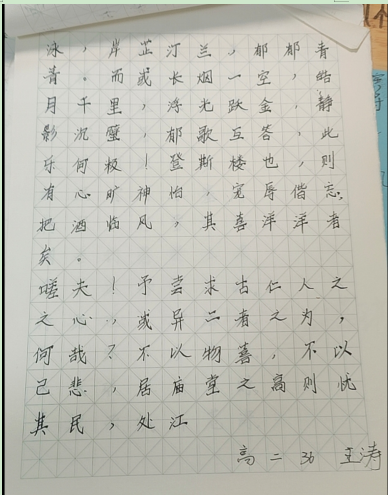 泳，岸芷汀兰，郁郁青
青。而或长烟一空，皓
月千里，浮光跃金，静
影沉璧，郁歌互答，此
乐何极！登斯楼也，则
有心旷神怡，宠辱偕忘，
把酒临风，其喜洋洋者
矣。
嗟夫！予尝求古仁人之
之心，或异二者之为，
何哉？不以物喜，不以
己悲，居庙堂之高则忧
其民，处江
高二36 王涛